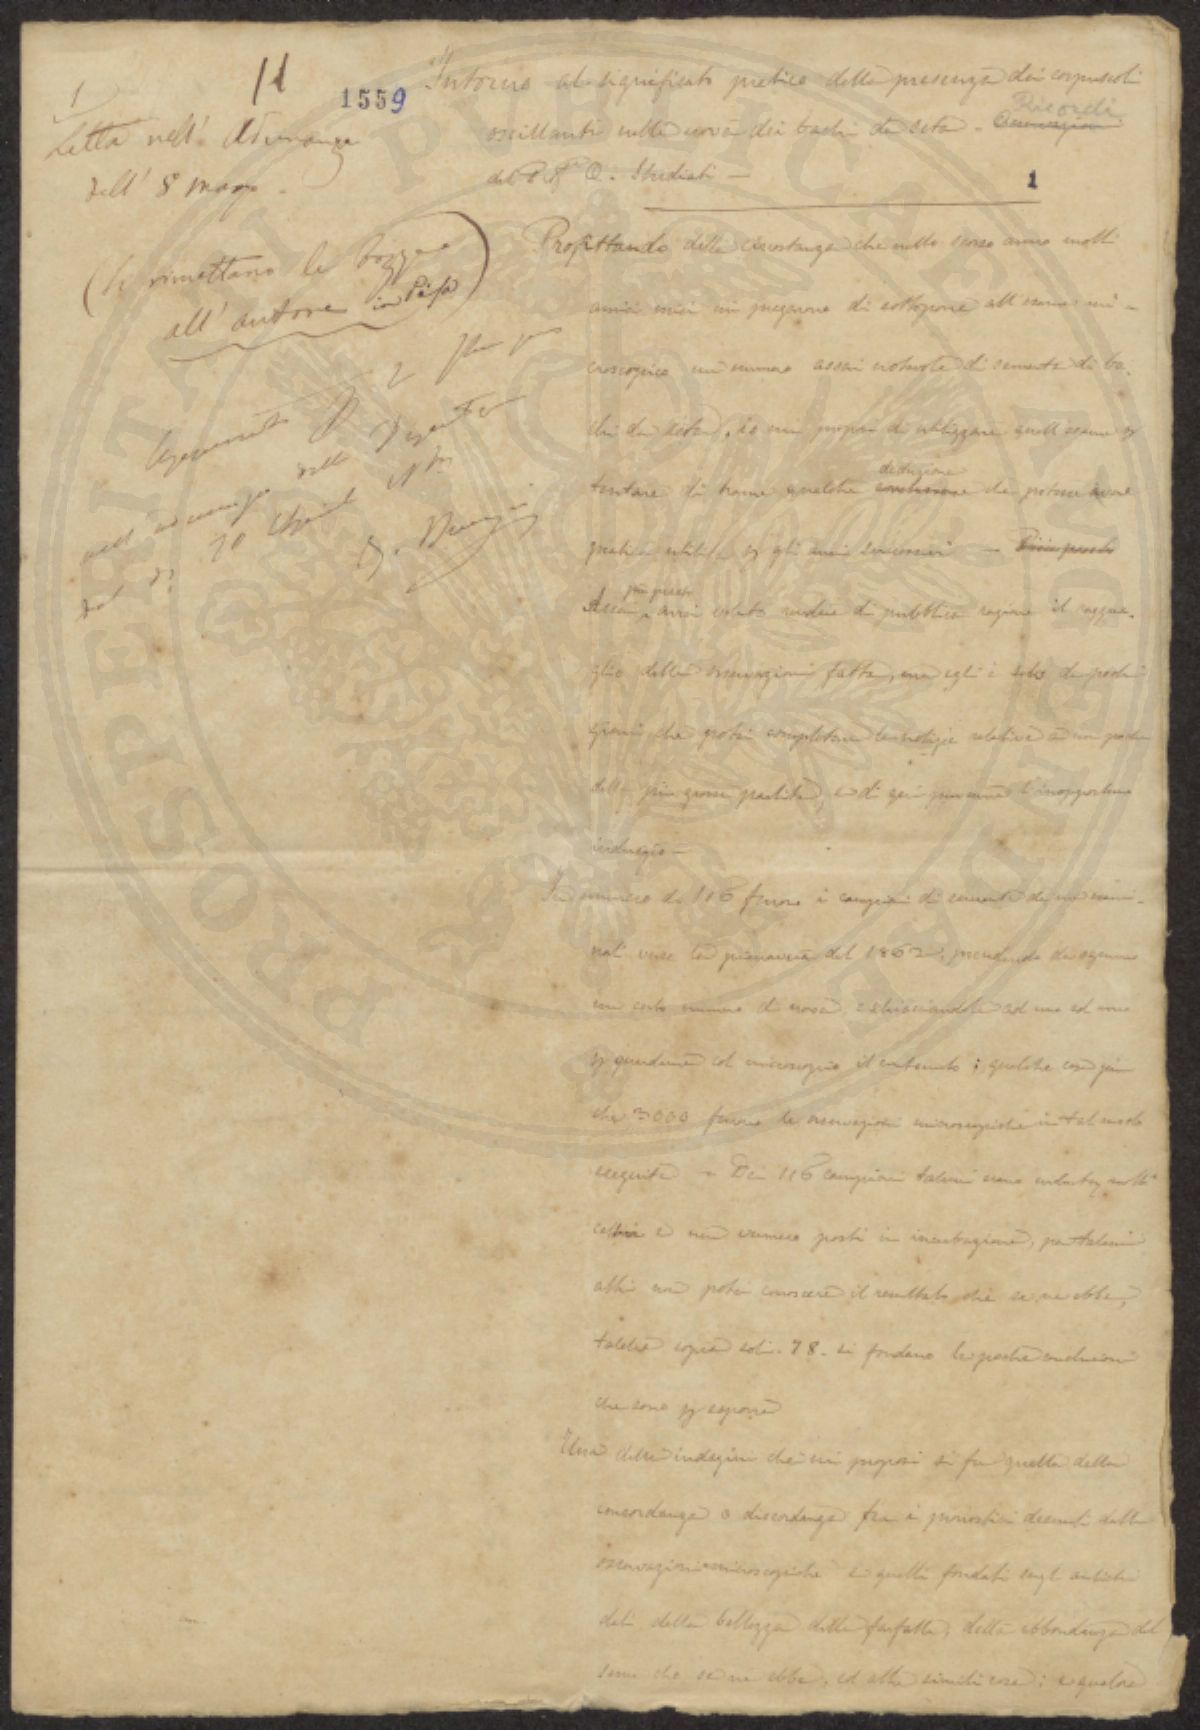 1
11
1559
Letta nell' Adunanza
dell' 8 marzo -
(Si rimettano le bozze
all' autore in Pisa)
nell' adunanza della
dal dì 30
Intorno al significato pratico della presenza dei corpuscoli
oscillanti nelle uova dei bachi da seta - Ricordi
del P. Studiati -
1
Profittando della circostanza che nello scorso anno molti
amici miei mi pregarono di sottoporre all' esame mi-
croscopico un numero assai notevole di semente di ba-
chi da seta, io mi proposi di utilizzare quell' esame p
tentare di trarne qualche deduzione che potesse avere
pratica utilità p gli anni successivi - Più presto
Assai più presto avrei voluto rendere di pubblica ragione il raggua-
glio delle osservazioni fatte, ma egli è solo da pochi
giorni che potei completare le notizie relative a non poche
delle più grosse partite, e di qui provenne l'inopportuno
indugio -
In numero di 116 furono i campioni di semente da me esami-
nati verso la primavera del 1862, prendendo da ognuno
un certo numero di uova, schiacciandole ad una ad una
p guardarne col microscopio il contenuto; qualche cosa più
che 3000 furono le osservazioni microscopiche in tal modo
eseguite - Dei 116 campioni taluni erano
cattivi e non vennero posti in incubazione, per taluni
altri non potei conoscere il resultato che se ne ebbe,
talché sopra soli 78 si fondano le poche conclusioni
che sono p esporre
Una delle indagini che mi proposi si fu quella della
concordanza o discordanza fra i pronostici desunti dalle
osservazioni microscopiche e quelli fondati sugl' antichi
dati della bellezza delle farfalle, della abbondanza del
seme che se ne ebbe, ed altre simili cose; e qualora